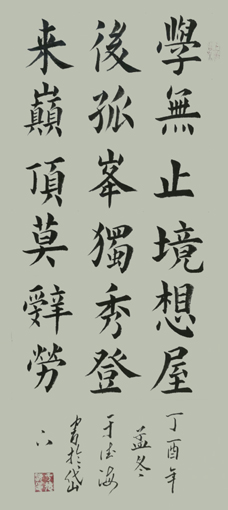 學無止境想屋
後孤峯獨秀登
来巔頂莫辭勞
丁酉年
孟冬
于德海
書於岱
下